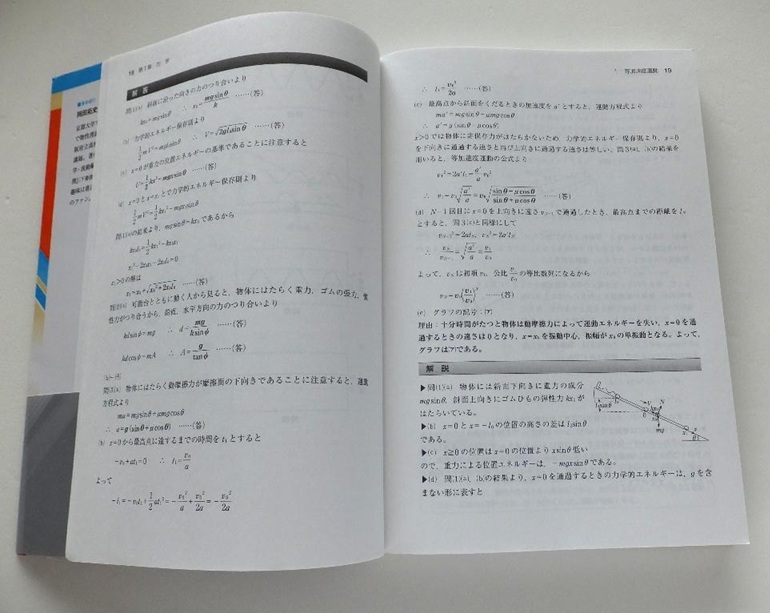 第1章 力 学
解 答
問1(a) 斜面に沿った向きの力のつり合いより
kx₀=mgsinθ ∴ x₀=mgsinθ/k ……(答)
(b) 力学的エネルギー保存則より
½mV²=mgl₀sinθ ∴ V=√2gl₀sinθ ……(答)
(c) x=0が重力の位置エネルギーの基準であることに注意すると
U=½kx²−mgxsinθ ……(答)
力学的エネルギー保存則より
問1(a)の結果より，mgsinθ=kx₀であるから
x₁>0の解は
……(答)
可動台とともに動く人から見ると，物体にはたらく重力，ゴムの張力，慣
性力がつり合うから，鉛直，水平方向の力のつり合いより
kdsinφ=mg ∴ d=mg/ksinφ ……(答)
kdcosφ=mA ∴ A=g/tanφ ……(答)
問3(a) 物体にはたらく動摩擦力が摩擦面の下向きであることに注意すると，運動
方程式より
ma=mgsinθ+μmgcosθ
∴ a=g(sinθ+μcosθ) ……(答)
(b) x=0から最高点に達するまでの時間をt₁とすると
−v₀+at₁=0 ∴ t₁=v₀/a
よって
−l₁=−v₀t₁+½at₁²=−v₀²/a+v₀²/2a=−v₀²/2a
19
∴ l₁=v₀²/2a ……(答)
(c) 最高点から斜面をくだるときの加速度をa′とすると，運動方程式より
ma′=mgsinθ−μmgcosθ
∴ a′=g(sinθ−μcosθ)
x>0では物体に非保存力がはたらかないため，力学的エネルギー保存則より，x=0
を下向きに通過する速さと再び上向きに通過する速さは等しい。問3(a)，(b)の結果を
用いると，等加速度運動の公式より
v₁²=2a′l₁=a′/a v₀²
∴ v₁=v₀√a′/a=v₀√(sinθ−μcosθ)/(sinθ+μcosθ) ……(答)
(d) N−1回目にx=0を上向きに速さvN₋₁で通過したとき，最高点までの距離をlN
とすると，問3(c)と同様にして
vN₋₁²=2alN，vN²=2a′lN
∴ vN/vN₋₁=√a′/a=v₁/v₀
よって，vNは初項v₀，公比v₁/v₀の等比数列になるから
vN=v₀(v₁/v₀)ᴺ ……(答)
(e) グラフの記号：(ア)
理由：十分時間がたつと物体は動摩擦力によって運動エネルギーを失い，x=0を通
過するときの速さは0となり，x=x₀を振動中心，振幅がx₀の単振動となる。よって，
グラフは(ア)である。
解 説
▶問1(a) 物体には斜面下向きに重力の成分
mgsinθ，斜面上向きにゴムひもの弾性力kx₀が
はたらいている。
▶(b) x=0とx=−l₀の位置の高さの差はl₀sinθ
である。
▶(c) x≧0の位置はx=0の位置よりxsinθ低い
ので，重力による位置エネルギーは，−mgxsinθである。
▶(d) 問1(a)，(b)の結果より，x=0を通過するときの力学的エネルギーは，gを含
まない形に表すと